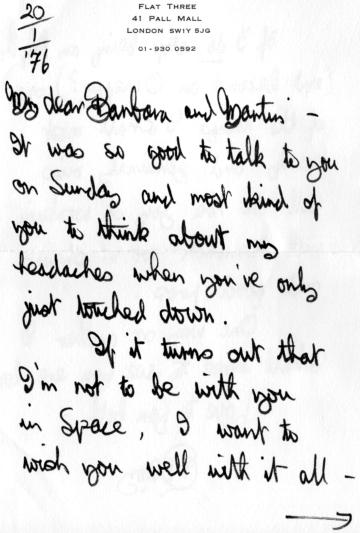 FLAT THREE
41 PALL MALL
LONDON SW1Y 5JG
01-930 0592
20
1
'76
My dear Barbara and Martin -
It was so good to talk to you
on Sunday and most kind of
you to think about my
headaches when you've only
just touched down.
If it turns out that
I'm not to be with you
in Space, I want to
wish you well with it all -
→